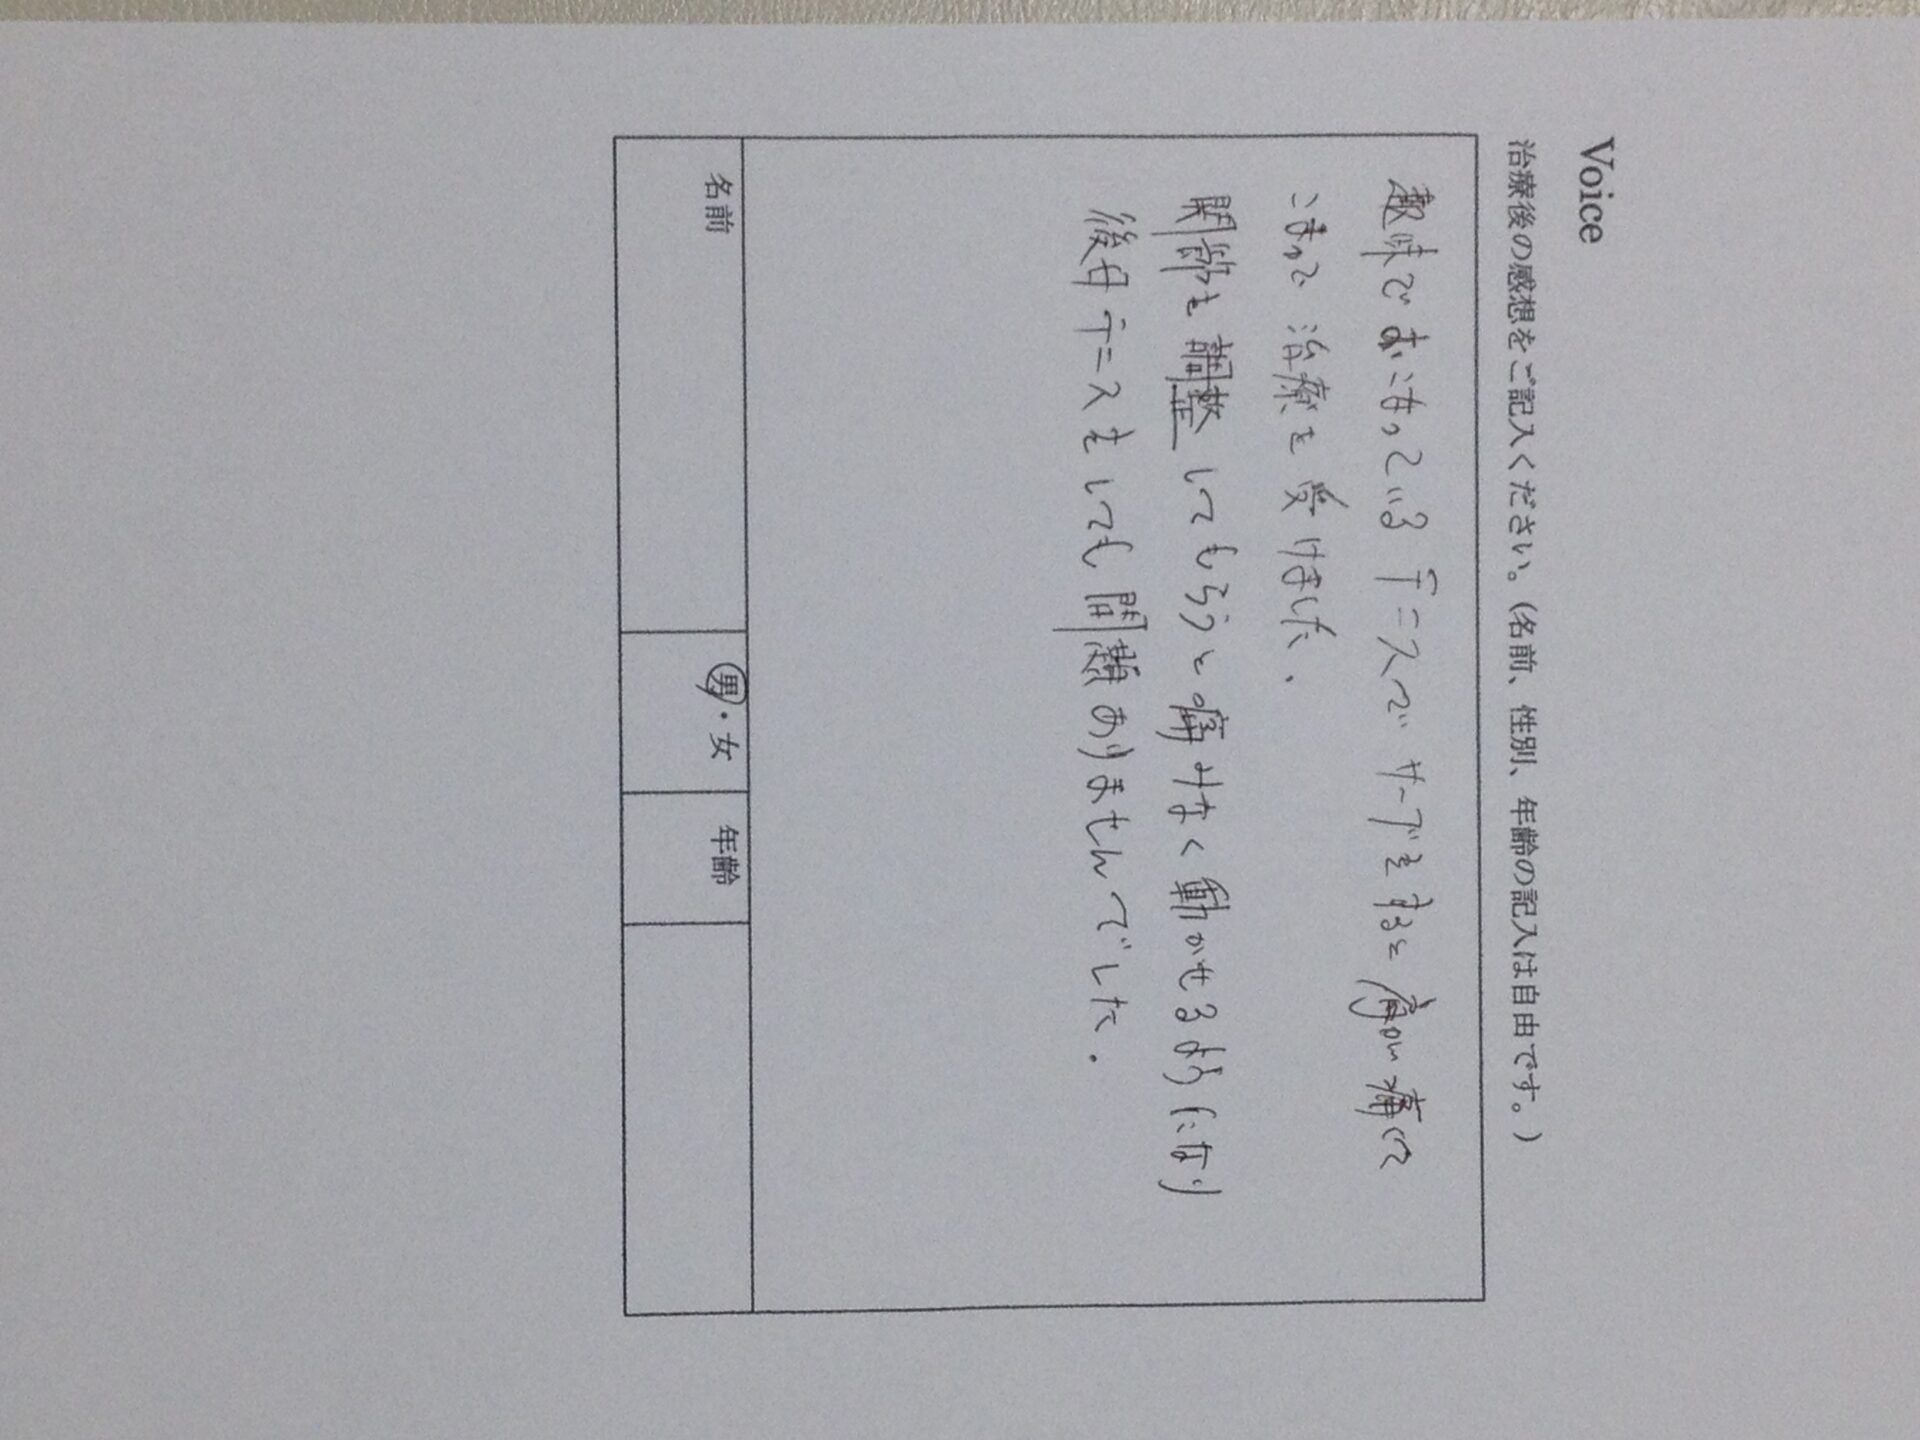 Voice
治療後の感想をご記入ください。(名前、性別、年齢の記入は自由です。)
趣味でおこなっているテニスでサーブをすると肩が痛くて
こまって治療を受けました.
関節を調整してもらうと痛みなく動かせるようになり
後日テニスをしても問題ありませんでした.
名前
男・女
年齢